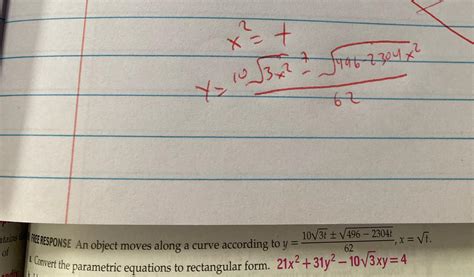 x² = t
y = (10√3x² ± √496-2304x²) / 62
FREE RESPONSE An object moves along a curve according to y = (10√3t ± √496 − 2304t) / 62, x = √t.
of
Convert the parametric equations to rectangular form. 21x² + 31y² − 10√3xy = 4